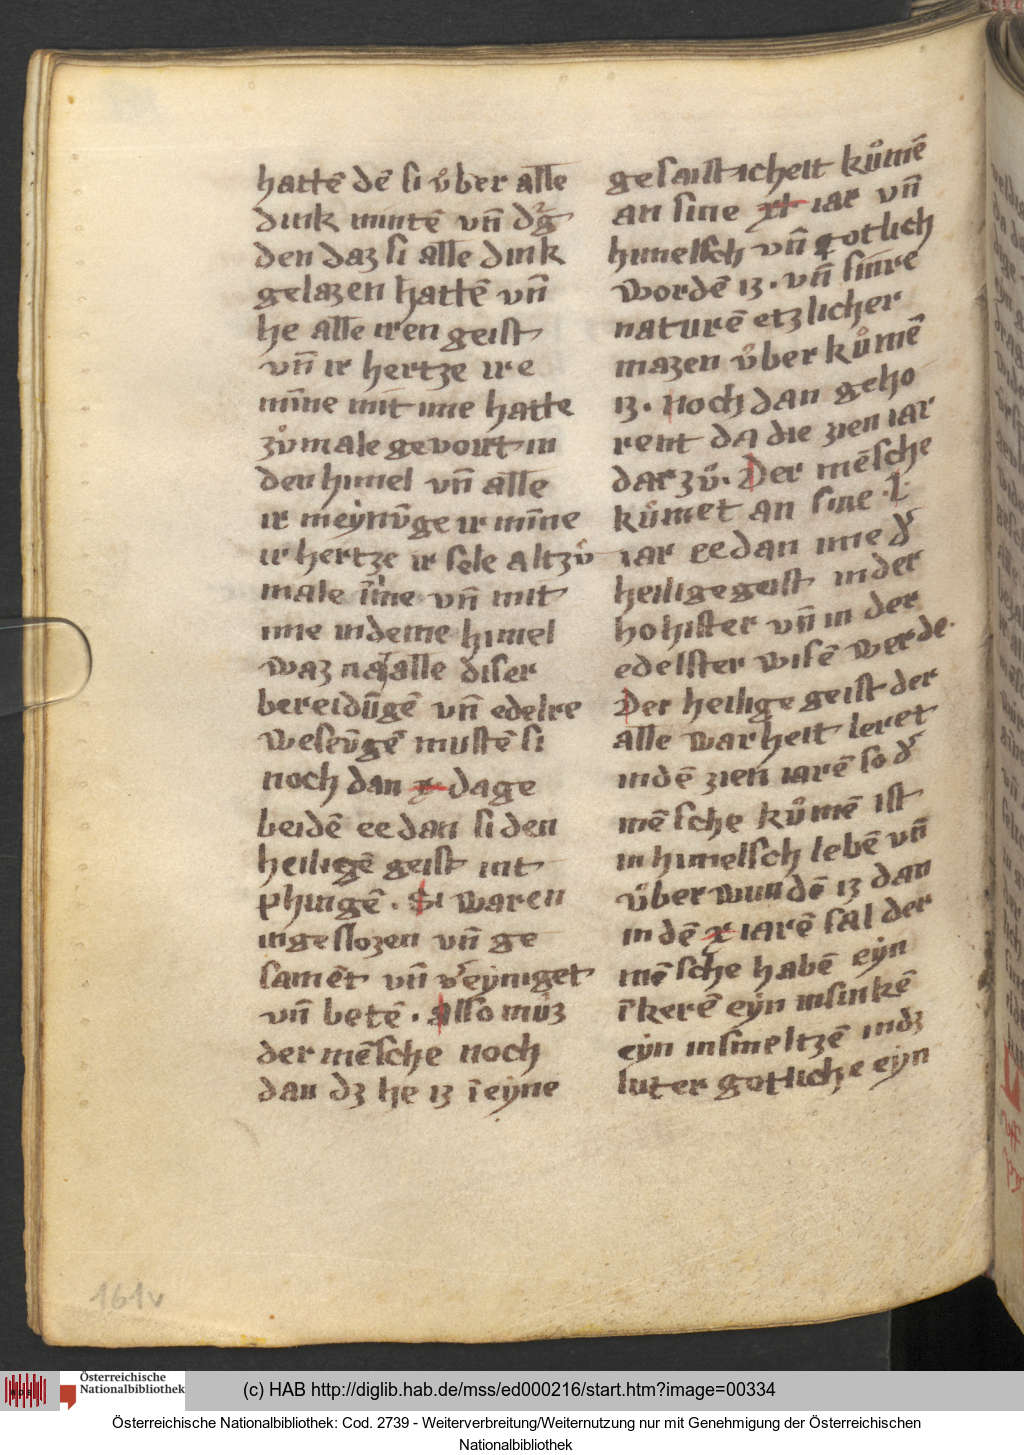 hattē dē si vͦber alle
dink mintē vn̄ dꝛ̄g
den daz si alle dink
gelazen hattē vn̄
he alle iren geist
vn̄ ir hertze ire
min̄e mit ime hatte
zvͦmale gevoirt in
den himel vn̄ alle
ir meynv̄ge ir min̄e
ir hertze ir sele altzvͦ
male īme vn̄ mit
ime indeme himel
waz na alle diser
bereidūgē vn̄ edelre
wesev̄gē mustē si
noch dan x dage
beidē ee dan si den
heiligē geist int
phingē . Si waren
ingeslozen vn̄ ge
samēt vn̄ v̓eyniget
vn̄ betē . also muͦz
der mēsche noch
dan dz he iz ī eyne
gesaisticheit kuͦmē
an sine xl iar vn̄
himelsch vn̄ gotlich
wordē iz . vn̄ sinre
naturē etzlicher
mazen vͦber kuͦmē
iz . noch dan geho
rent da die zien iar
dar zvͦ . Der mēsche
kuͦmet an sine .L.
iar ee dan ime dͬ
heilige geist in der
hohister vn̄ in der
edelster wisē werde.
Der heilige geist der
alle warheit leret
in dē zien iarē so dͬ
mēsche kuͦmē ist
in himelsch lebē vn̄
vͦber wundē iz dan
in dē x iarē sal der
mēsche habē eyn
īkerē eyn insinkē
eyn insmeltzē in dz
luter gotliche eyn
161v
Österreichische
Nationalbibliothek
(c) HAB http://diglib.hab.de/mss/ed000216/start.htm?image=00334
Österreichische Nationalbibliothek: Cod. 2739 - Weiterverbreitung/Weiternutzung nur mit Genehmigung der Österreichischen
Nationalbibliothek